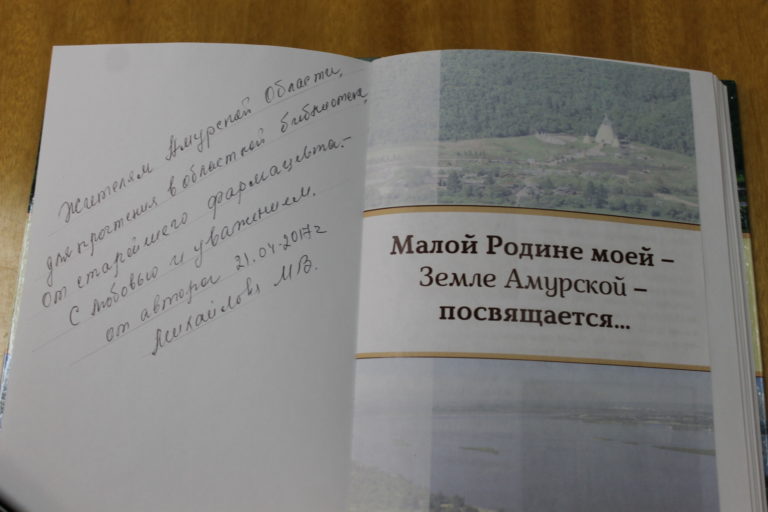 Жителям Амурской Области,
для прочтения в областной библиотеке,
от старейшего фармацевта.-
С любовью и уважением.
от автора 21.04.2017г
Михайлова М.В.
Малой Родине моей –
Земле Амурской –
посвящается...